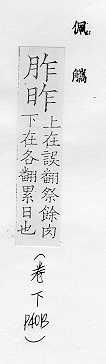 佩觿
胙昨
上在誤翻祭餘肉
下在各翻累日也
(卷下 P40B)